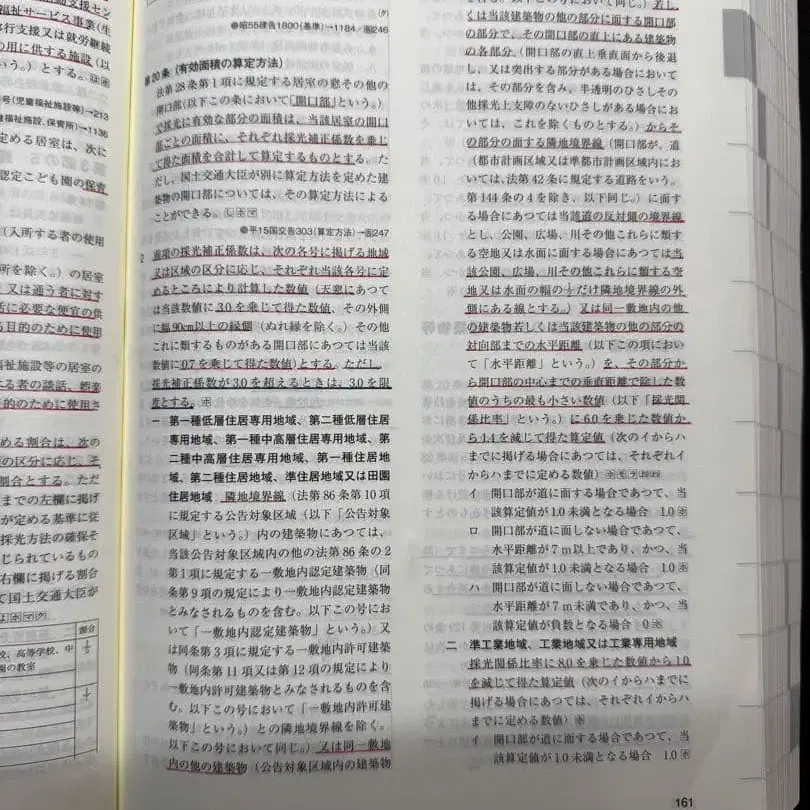 動支援セン
福祉サービス事業(生
移行支援又は就労継続
の用に供する施設(以
いう。)とする。
号(児童福祉施設等)→213
福祉施設、保育所)→1136
定める居室は、次に
認定こども園の保育
(入所する者の使用
所を除く。)の居室
又は通う者に対す
活に必要な便宜の供
る目的のために使用
福祉施設等の居室の
る者の談話、娯楽
目的のために使用さ
める割合は、次の
の区分に応じ、そ
割合とする。ただ
までの左欄に掲げ
が定める基準に従
採光方法の確保そ
じられているもの
右欄に掲げる割合
て国土交通大臣が
割合
校、高等学校、中
園の教室
●昭55建告1800(基準)→1184/告246
第20条(有効面積の算定方法)
法第28条第1項に規定する居室の窓その他の
開口部(以下この条において「開口部」という。)
で採光に有効な部分の面積は、当該居室の開口
部ごとの面積に、それぞれ採光補正係数を乗じ
て得た面積を合計して算定するものとする。た
だし、国土交通大臣が別に算定方法を定めた建
築物の開口部については、その算定方法による
ことができる。
●平15国交告303(算定方法)→告247
2 前項の採光補正係数は、次の各号に掲げる地域
又は区域の区分に応じ、それぞれ当該各号に定
めるところにより計算した数値(天窓にあつて
は当該数値に3.0を乗じて得た数値、その外側
に幅90cm以上の縁側(ぬれ縁を除く。)その他
これに類するものがある開口部にあつては当該
数値に0.7を乗じて得た数値)とする。ただし、
採光補正係数が3.0を超えるときは、3.0を限
度とする。
一 第一種低層住居専用地域、第二種低層住居
専用地域、第一種中高層住居専用地域、第
二種中高層住居専用地域、第一種住居地
域、第二種住居地域、準住居地域又は田園
住居地域 隣地境界線(法第86条第10項
に規定する公告対象区域(以下「公告対象
区域」という。)内の建築物にあつては、
当該公告対象区域内の他の法第86条の2
第1項に規定する一敷地内認定建築物(同
条第9項の規定により一敷地内認定建築物
とみなされるものを含む。以下この号にお
いて「一敷地内認定建築物」という。)又
は同条第3項に規定する一敷地内許可建築
物(同条第11項又は第12項の規定により
一敷地内許可建築物とみなされるものを含
む。以下この号において「一敷地内許可建
築物」という。)との隣地境界線を除く。
以下この号において同じ。)又は同一敷地
内の他の建築物(公告対象区域内の建築物
いて同じ。)若し
くは当該建築物の他の部分に面する開口部
の部分で、その開口部の直上にある建築物
の各部分、(開口部の直上垂直面から後退
し、又は突出する部分がある場合において
は、その部分を含み、半透明のひさしその
他採光上支障のないひさしがある場合にお
いては、これを除くものとする。)からそ
の部分の面する隣地境界線(開口部が、道
(都市計画区域又は準都市計画区域内にお
いては、法第42条に規定する道路をいう。
第144条の4を除き、以下同じ。)に面す
る場合にあつては当該道の反対側の境界線
とし、公園、広場、川その他これらに類す
る空地又は水面に面する場合にあつては当
該公園、広場、川その他これらに類する空
地又は水面の幅の½だけ隣地境界線の外
側にある線とする。)又は同一敷地内の他
の建築物若しくは当該建築物の他の部分の
対向部までの水平距離(以下この項におい
て「水平距離」という。)を、その部分か
ら開口部の中心までの垂直距離で除した数
値のうちの最も小さい数値(以下「採光関
係比率」という。)に6.0を乗じた数値か
ら1.4を減じて得た算定値(次のイからハ
までに掲げる場合にあつては、それぞれイ
からハまでに定める数値)
イ 開口部が道に面する場合であつて、当
該算定値が1.0未満となる場合 1.0
ロ 開口部が道に面しない場合であつて、
水平距離が7m以上であり、かつ、当
該算定値が1.0未満となる場合 1.0
ハ 開口部が道に面しない場合であつて、
水平距離が7m未満であり、かつ、当
該算定値が負数となる場合 0
二 準工業地域、工業地域又は工業専用地域
採光関係比率に8.0を乗じた数値から1.0
を減じて得た算定値(次のイからハまでに
掲げる場合にあつては、それぞれイからハ
までに定める数値)
イ 開口部が道に面する場合であつて、当
該算定値が1.0未満となる場合 1.0
161